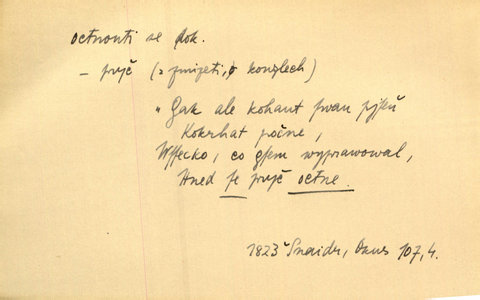 octnouti se dok.
– pryč (= zmizeti, o kouzlech)
„Gak ale kohaut prwnj pjseň
Kokrhat počne,
Wssecko, co gsem wyprawowal,
Hned se pryč octne.
1823 Šnaidr, Okus 107, 4.